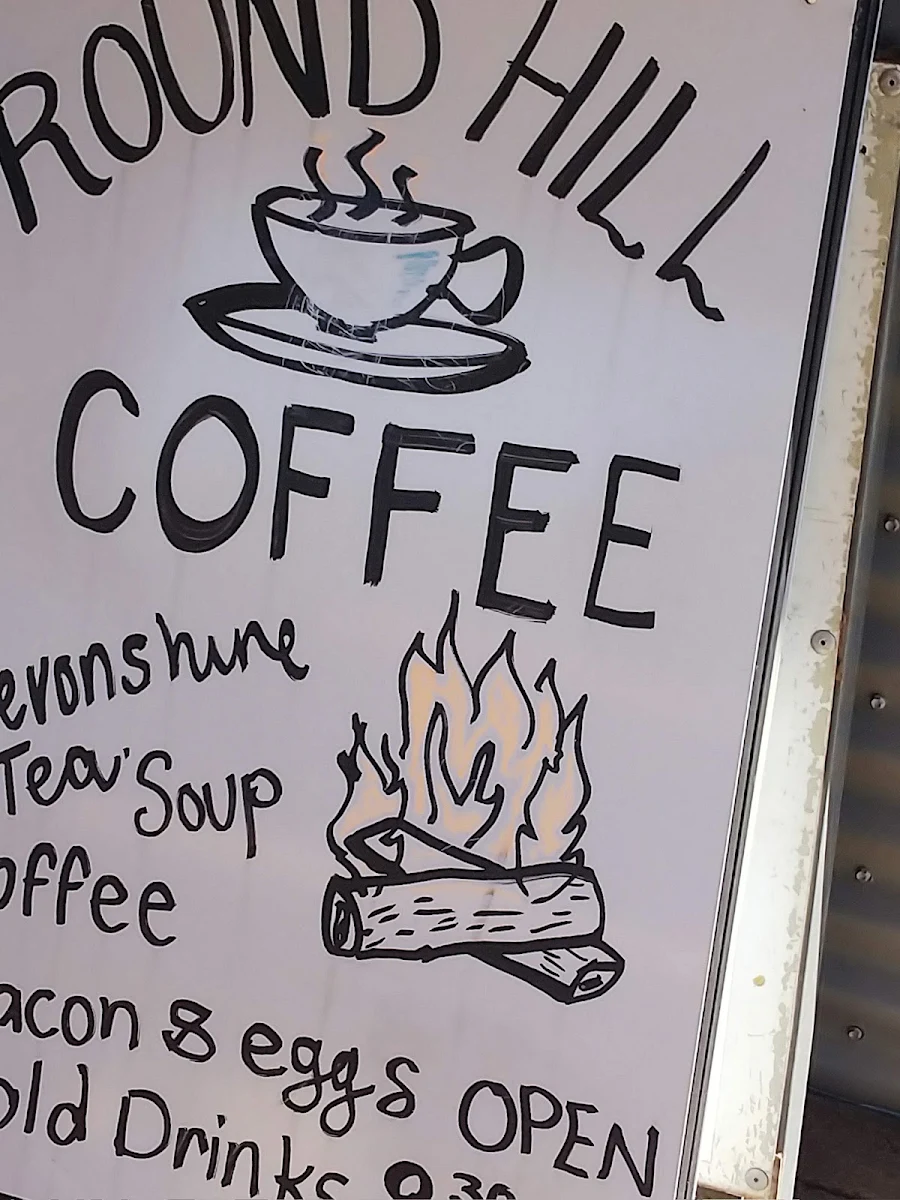 ROUND HILL
COFFEE
evonshire
Tea Soup
offee
acon & eggs
OPEN
old Drinks 9.30